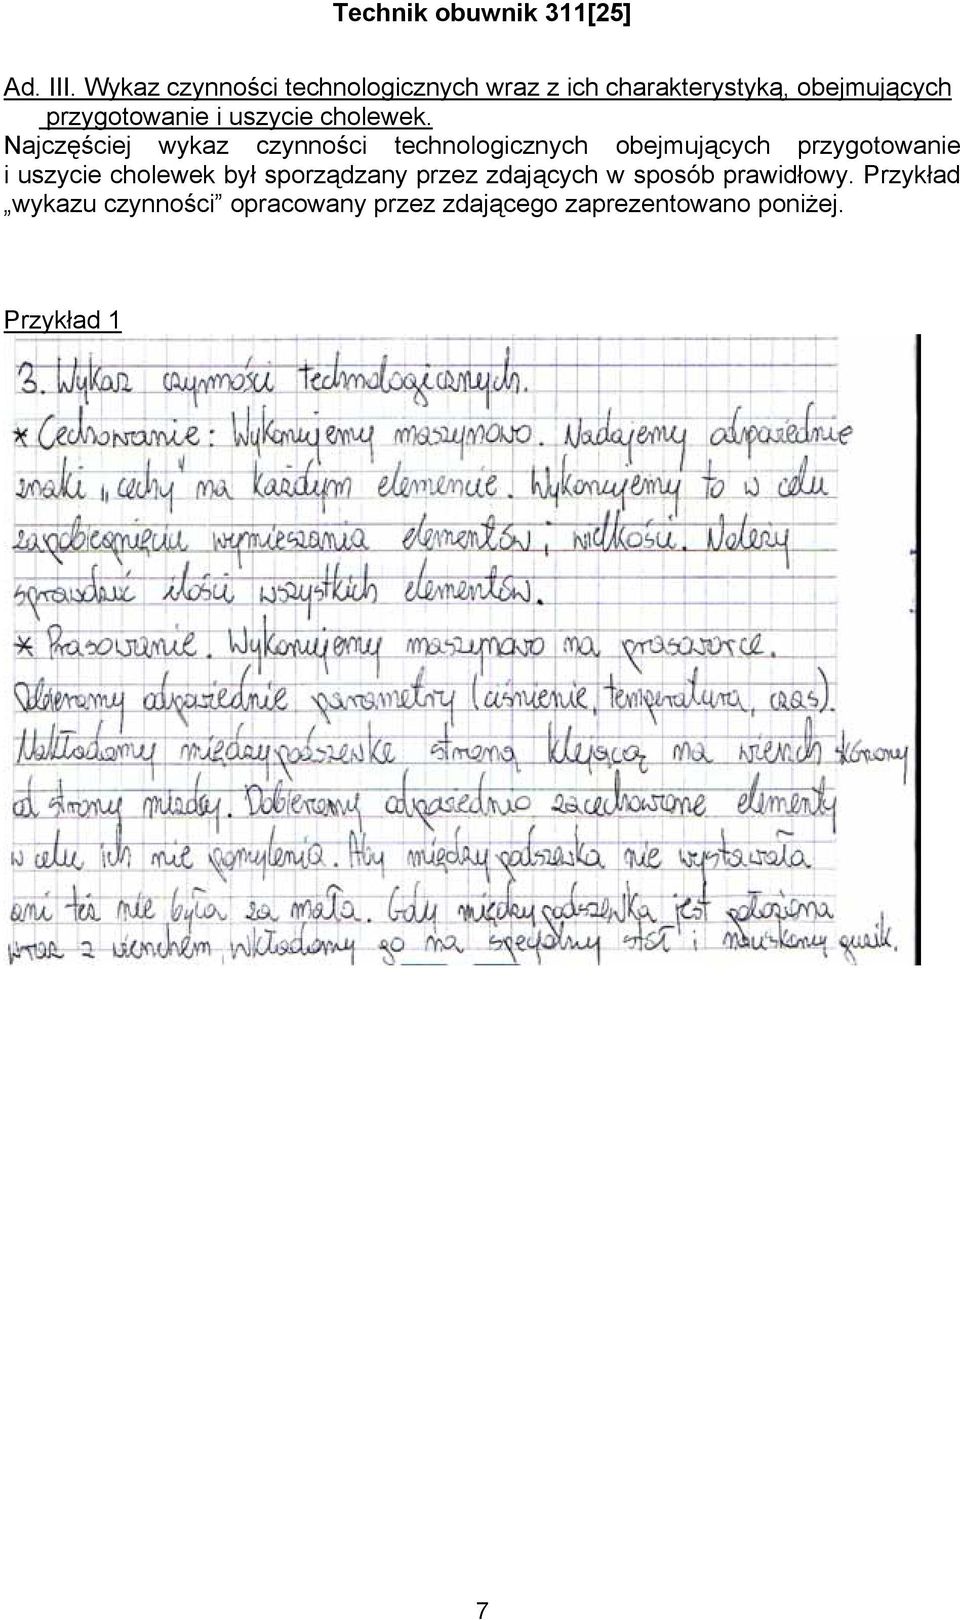 Technik obuwnik 311[25]
Ad. III. Wykaz czynności technologicznych wraz z ich charakterystyką, obejmujących
przygotowanie i uszycie cholewek.
Najczęściej wykaz czynności technologicznych obejmujących przygotowanie
i uszycie cholewek był sporządzany przez zdających w sposób prawidłowy. Przykład
„wykazu czynności” opracowany przez zdającego zaprezentowano poniżej.
Przykład 1
3. Wykaz czynności technologicznych.
* Cechowanie: Wykonujemy maszynowo. Nadajemy odpowiednie
znaki „cechy” na każdym elemencie. Wykonujemy to w celu
zapobiegnięciu wymieszania elementów i wielkości. Należy
sprawdzić ilości wszystkich elementów.
* Prasowanie. Wykonujemy maszynowo na prasowarce.
Dobieramy odpowiednie parametry (ciśnienie, temperatura, czas).
Nakładamy międzypodszewkę stroną klejącą na wierzch skórzany
od strony mizdry. Dobieramy odpowiednio zacechowane elementy
w celu ich nie pomylenia. Aby międzypodszewka nie wystawała
ani też nie była za mała. Gdy międzypodszewka jest położona
wraz z wierzchem, wkładamy go na specjalny stół i naciskamy guzik.
7